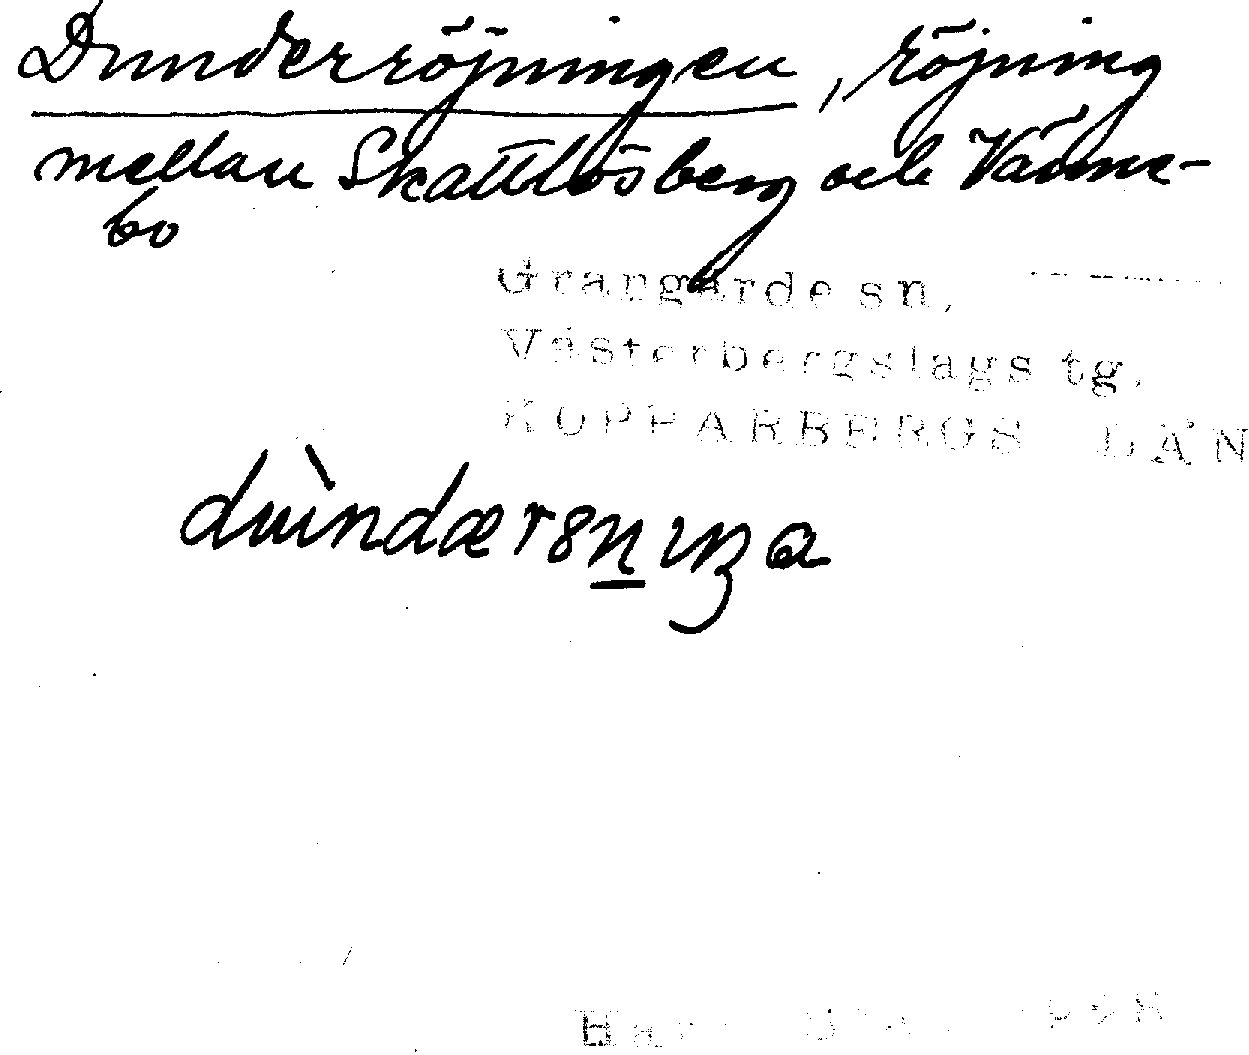 Dunderröjningen, röjning
mellan Skattlösberg och Vänne-
bo
Grangärde sn,
Västerbergslags tg.
KOPPARBERGS LÄN